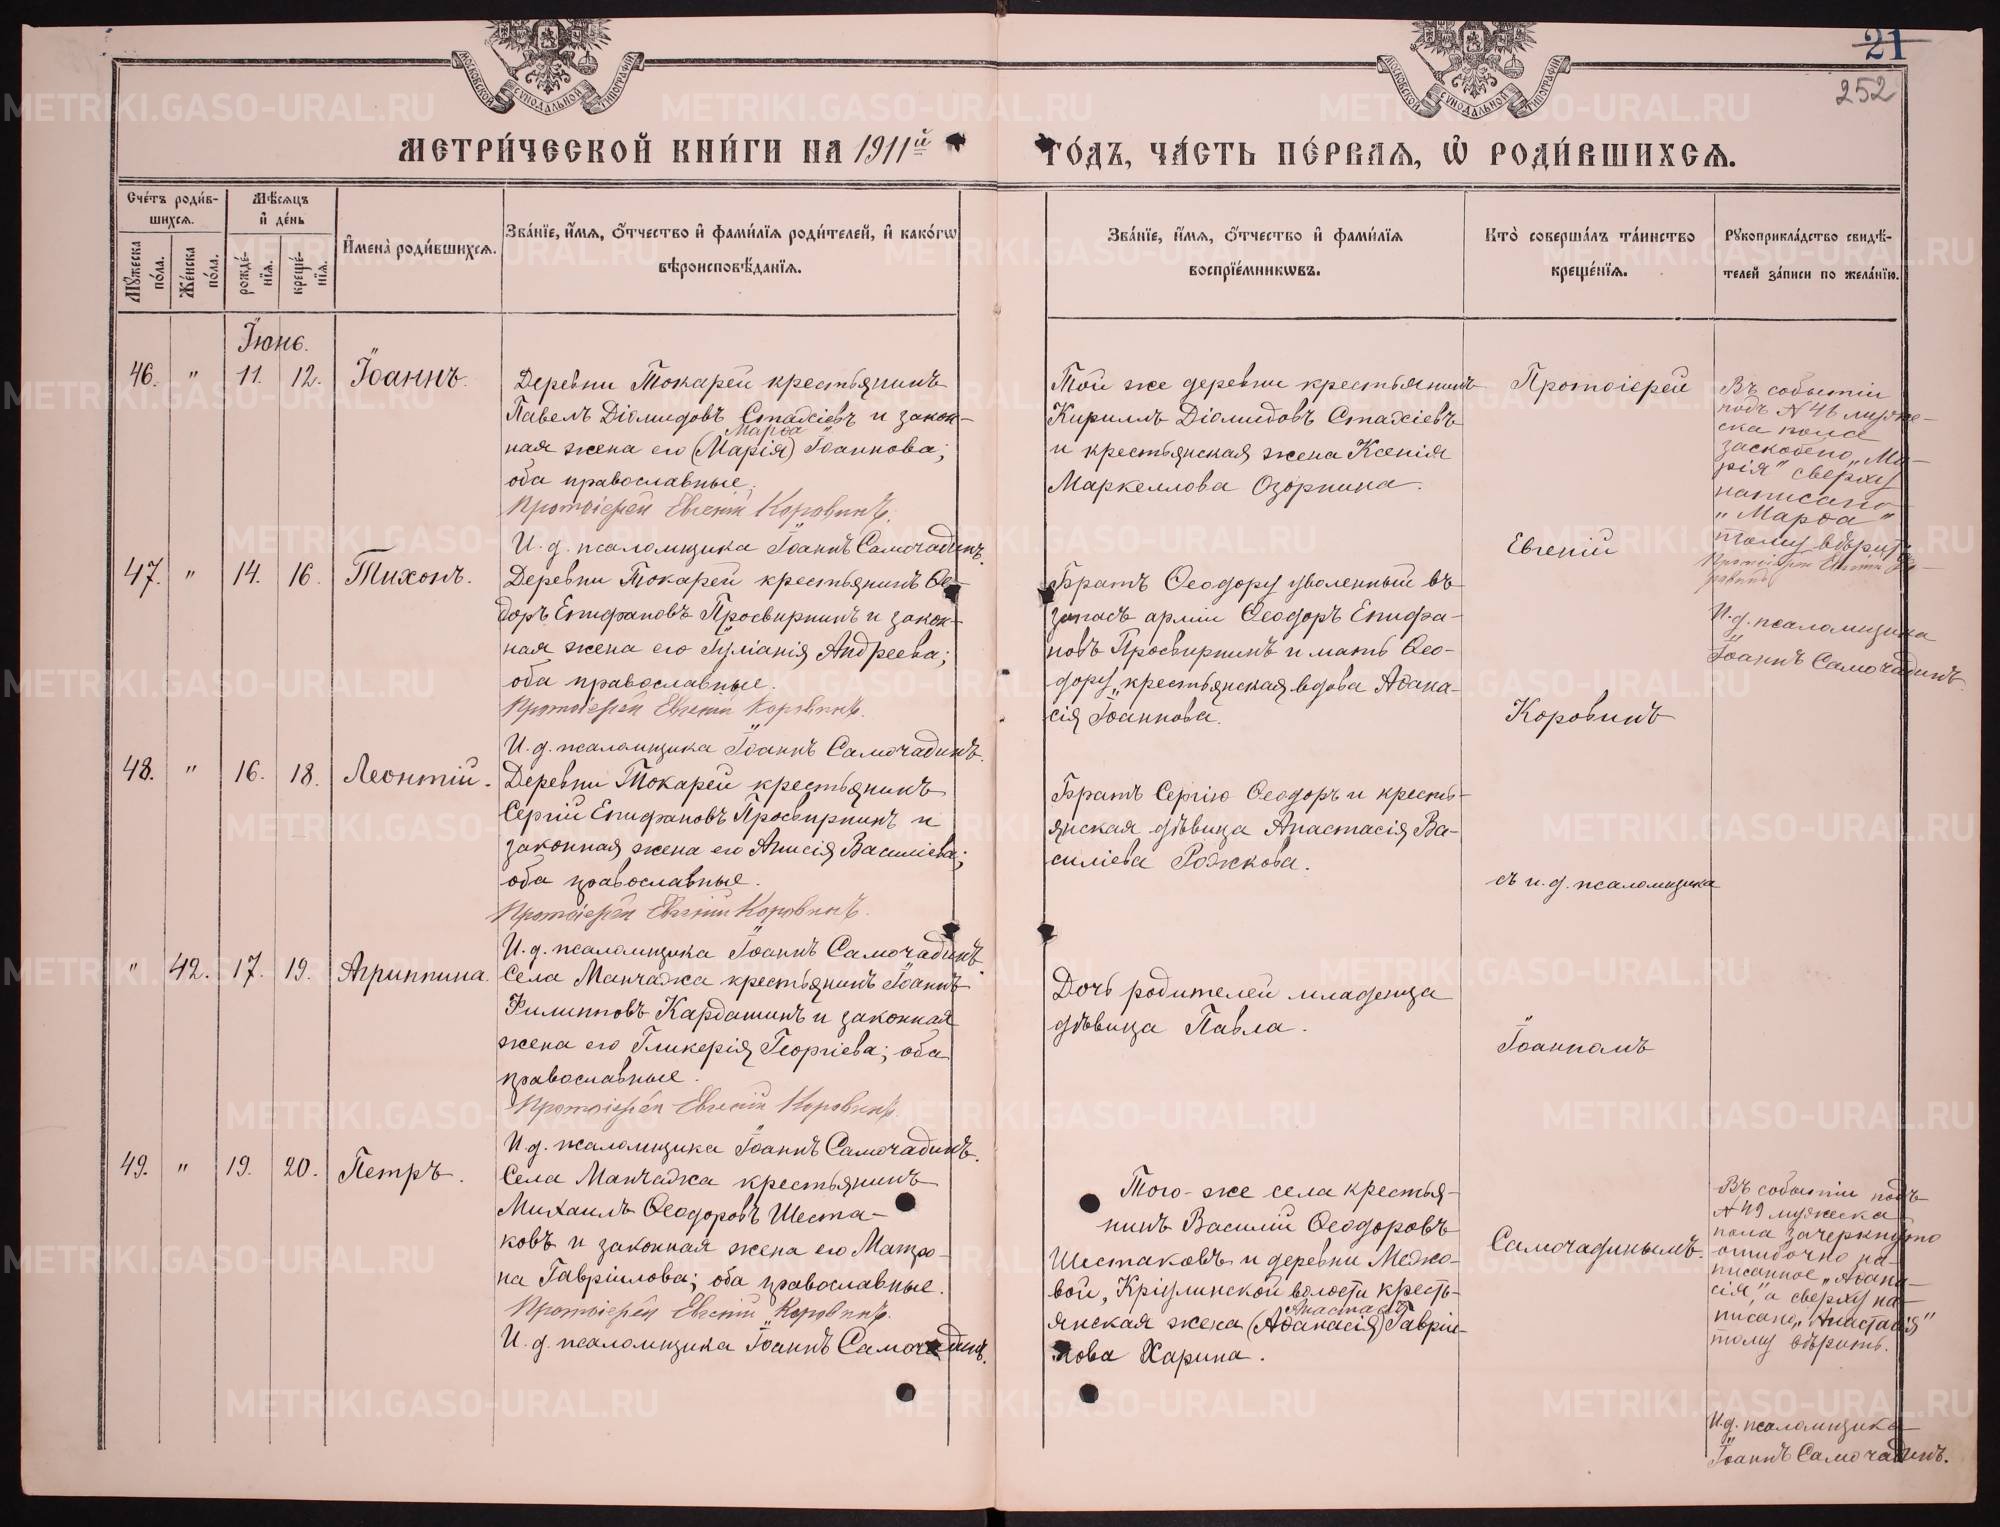 МОСКОВСКОЙ СУНОДАЛЬНОЙ ТИПОГРАФІИ
МОСКОВСКОЙ СУНОДАЛЬНОЙ ТИПОГРАФІИ
21
252
МЕТРИ́ЧЕСКОЙ КНИ́ГИ НА 1911й
ГО́ДЪ, ЧА́СТЬ ПЕ́РВАЯ, Ѡ҆ РОДИ́ВШИХСЯ.
Сче́тъ роди́в-
шихся.
Мꙋ́жеска пола.
Же́нска пола.
Мѣ́сяцъ
и҆ де́нь
рожде́-
нїя.
креще́-
нїя.
И҆мена̀ роди́вшихся.
Зва́нїе, и҆́мя, ѻ҆́тчество и҆ фами́лїя роди́телей, и҆ како́гѡ
вѣроисповѣ́данїя.
Зва́нїе, и҆́мя, ѻ҆́тчество и҆ фами́лїя
воспрїе́мникѡвъ.
Кто̀ соверша́лъ та́инство
креще́нїя.
Рꙋкоприкла́дство свидѣ́-
телей за́писи по жела́нїю.
Іюнь.
46. " 11. 12. Іоаннъ.
Деревни Токарей крестьянинъ
Павелъ Діомидовъ Стахіевъ и закон-
Марѳа
ная жена его (Марія) Іоаннова;
оба православные.
Протоіерей Евгеній Коровинъ.
И. д. псаломщика Іоаннъ Самочадинъ.
Той же деревни крестьянинъ
Кириллъ Діомидовъ Стахіевъ
и крестьянская жена Ксенія
Маркеллова Озорнина.
Протоіерей
Въ событіи
подъ №46 муже-
ска пола
заскоблено „Ма-
рія" сверху
написано
„Марѳа"
тому вѣрить
Протоіерей Евгеній Ко-
ровинъ
И. д. псаломщика
Іоаннъ Самочадинъ.
47. " 14. 16. Тихонъ.
Деревни Токарей крестьянинъ Ѳео-
доръ Епифановъ Просвирнинъ и закон-
ная жена его Іуліанія Андреева;
оба православные.
Протоіерей Евгеній Коровинъ.
И. д. псаломщика Іоаннъ Самочадинъ.
Братъ Ѳеодору уволенный въ
запасъ арміи Ѳеодоръ Епифа-
новъ Просвирнинъ и мать Ѳео-
дору, крестьянская вдова Аѳана-
сія Іоаннова.
Евгеній
Коровинъ
48. " 16. 18. Леонтій.
Деревни Токарей крестьянинъ
Сергій Епифановъ Просвирнинъ и
законная жена его Анисія Василіева;
оба православные.
Протоіерей Евгеній Коровинъ.
И. д. псаломщика Іоаннъ Самочадинъ.
Братъ Сергію Ѳеодоръ и кресть-
янская дѣвица Анастасія Ва-
силіева Рожкова.
съ и. д. псаломщика
" 42. 17. 19. Агриппина.
Села Манчажа крестьянинъ Іоаннъ
Филипповъ Кардашинъ и законная
жена его Гликерія Георгіева; оба
православные.
Протоіерей Евгеній Коровинъ.
И. д. псаломщика Іоаннъ Самочадинъ.
Дочь родителей младенца
дѣвица Павла.
Іоанномъ
49. " 19. 20. Петръ.
Села Манчажа крестьянинъ
Михаилъ Ѳеодоровъ Шеста-
ковъ и законная жена его Матро-
на Гавріилова; оба православные.
Протоіерей Евгеній Коровинъ.
И. д. псаломщика Іоаннъ Самочадинъ.
Того-же села крестья-
нинъ Василій Ѳеодоровъ
Шестаковъ и деревни Межо-
вой, Кріулинской волости кресть-
Анастасія
янская жена (Аѳанасія) Гавріи-
лова Харина.
Самочадинымъ.
Въ событіи подъ
№49 мужеска
пола зачеркнуто
ошибочно на-
писанное „Аѳана-
сія," а сверху на-
писано „Анастасія"
тому вѣрить.
И. д. псаломщика
Іоаннъ Самочадинъ.